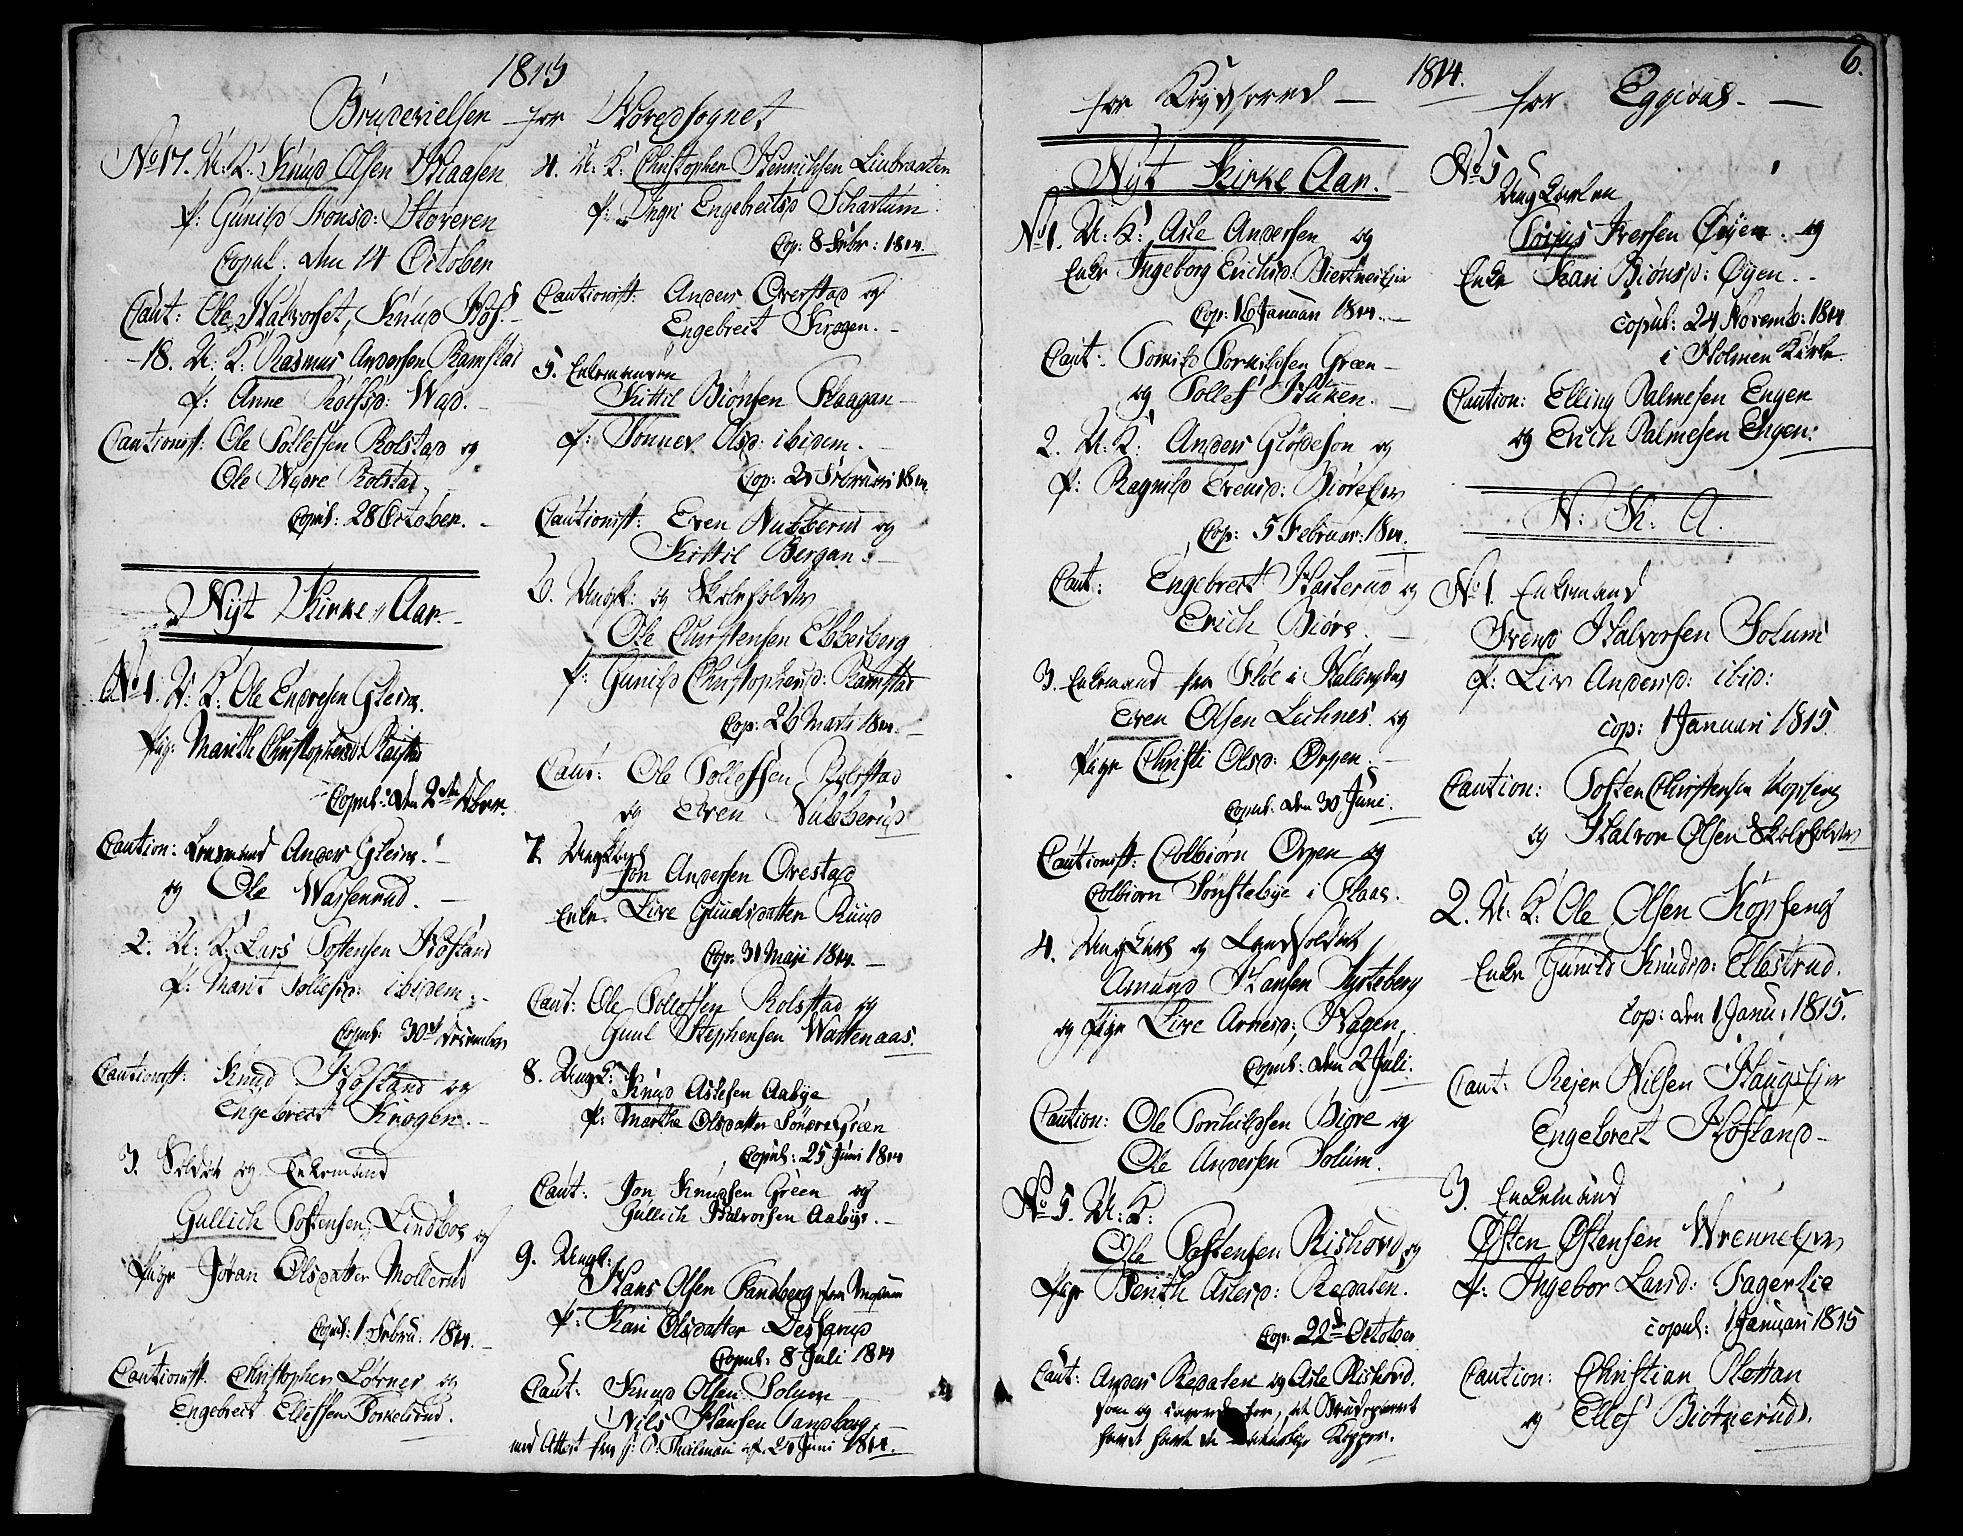 1813
Brudevielsen for Nordsognet
No 17. U: K: Knud Olsen
P: Gunild Jonsd: Støveren
Copul: den 14 October
Caut: Ole Halvorset, Knud Hof.
18. U: K: Rasmus Andersen Ramstad
P: Anne Rolfsd:
Cautionist: Ole Tollefsen Rolstad og
Ole Rolstad
Copul: 28 October.
Nyt Kirke-Aar.
No 1. U: K: Ole Endresen Gleine.
Pige: Marithe Christophersd:
Copul: den 2den
Caution: Lensmand Anders Gleine.
og Ole Wassenrud.
2. U: K: Lars Tostensen Hofland
P: Marit Tollefsd: ibidem.
Copul: 30te December
Cautionist: Knud Hofland og
Engebrect Krogen.
3. Soldat og Enkemand
Gullich Tostensen Lindboe og
Pige Jøran Olsdatter Mollerud
Copul: 1 Febru: 1814.
Cautionist. Christopher Løvner og
Engebrect Ellefsen
4. U: K: Christopher Henrichsen Linbraaten
P: Ingri Engebrectsd Schartum
Cop: 8 Febr: 1814.
Cautionist: Anders Overstad og
Engebrect Krogen.
5. Enkemanden
Kittil Biönsen Skaagan
P: Olsd: ibidem.
Cop: 21 Februari 1814
Cautionist: Even Nubberud og
Kittil Bergan.
6. Ungk: og Skoleholder
Ole Christensen Ebbesberg
P: Gunild Christophersd: Ramstad
Cop: 26 Marti 1814.
Caut: Ole Tollefsen Rolstad
og Even Nubberud
7. Ungkarl
Jon Andersen Ovestad
Enke Live Guulsdatter Ruud
Cop: 31 Maji 1814.
Caut: Ole Tollefsen Rolstad og
Guul Stephensen Wattenaas.
8. Ungk:
Knud Aslesen Aabye
P: Marthe Olsdatter Söndre Green
Copul: 25 Juni 1814
Caut: Jon Knudsen Green og
Gullich Halvorsen Aabye.
9. Ungk:
Hans Olsen Sandberg fra Modum
P: Kari Olsdatter
Copul: 8 Juli 1814
Caut: Knud Olsen Solum
Nils Hansen Sandberg,
med Attest fra af 21 Juni 1814.
for Krydsered
1814.
for Eggedal
6.
Nyt Kirke Aar.
No 1. U: K: Asle Andersen og
Enke Ingeborg Erichsd
Cop: 16 Januari 1814.
Caut: Tomild Tormildsen Green
og Tollef Bakken.
2. U: K: Anders Glödesön og
P: Ragnild Evensd:
Cop: 5 Februar: 1814.
Caut: Engebrect og
Erich Biöre.
3. Enkemand fra i
Even Olsen og
Pige Christi Olsd: Orpen.
Copul: den 30 Juni.
Cautionist: Colbiörn Orpen og
Colbiorn i
4. Ungkarl og Landsoldat
Amund Hansen
og Pige Live Arnesd: Hagen,
Copul: den 2 Juli.
Caution: Ole Torkildsen Biöre og
Ole Andersen Solum.
No 5. U: K:
Ole Tostensen Rishovd og
Pige Berith Aslesd: Redalen.
Cop: 22de October
Caut: Anders Redalen og Asle Rishovd.
som og for, at Brudeparret
havde havt de Kopper.
No 5
Ungkarlen
Iversen Øyen og
Enke Kari Biönsd: Øyen.
copul: 24 Novemb: 1814
i Holmen Kirke.
Caution: Elling Palmesen Engen
og Erich Palmesen Engen.
N: K: A.
No 1. Enkemand
Svend Halvorsen Solum
P: Liv Andersd: ibid:
cop: 1 Januari 1815.
Caution: Tosten Christensen Kopseng
og Halvor Olsen Skoleholder
2. U: K: Ole Olsen Kopseng
Enke Gunild Knudsd: Ellestrud.
Cop: den 1 Janu: 1815.
Caut: Rejer Nilsen
Engebrect Hofland
3. Enkemand
Østen Østensen
P: Ingebor Larsd: Fagerlie
copul: 1 Januari 1815
Caution: Christian Slettan
og Ellef Biörnerud.